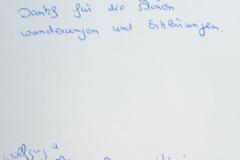 Danke für die schönen
wanderungen und Erklärungen.
Wolfgang u